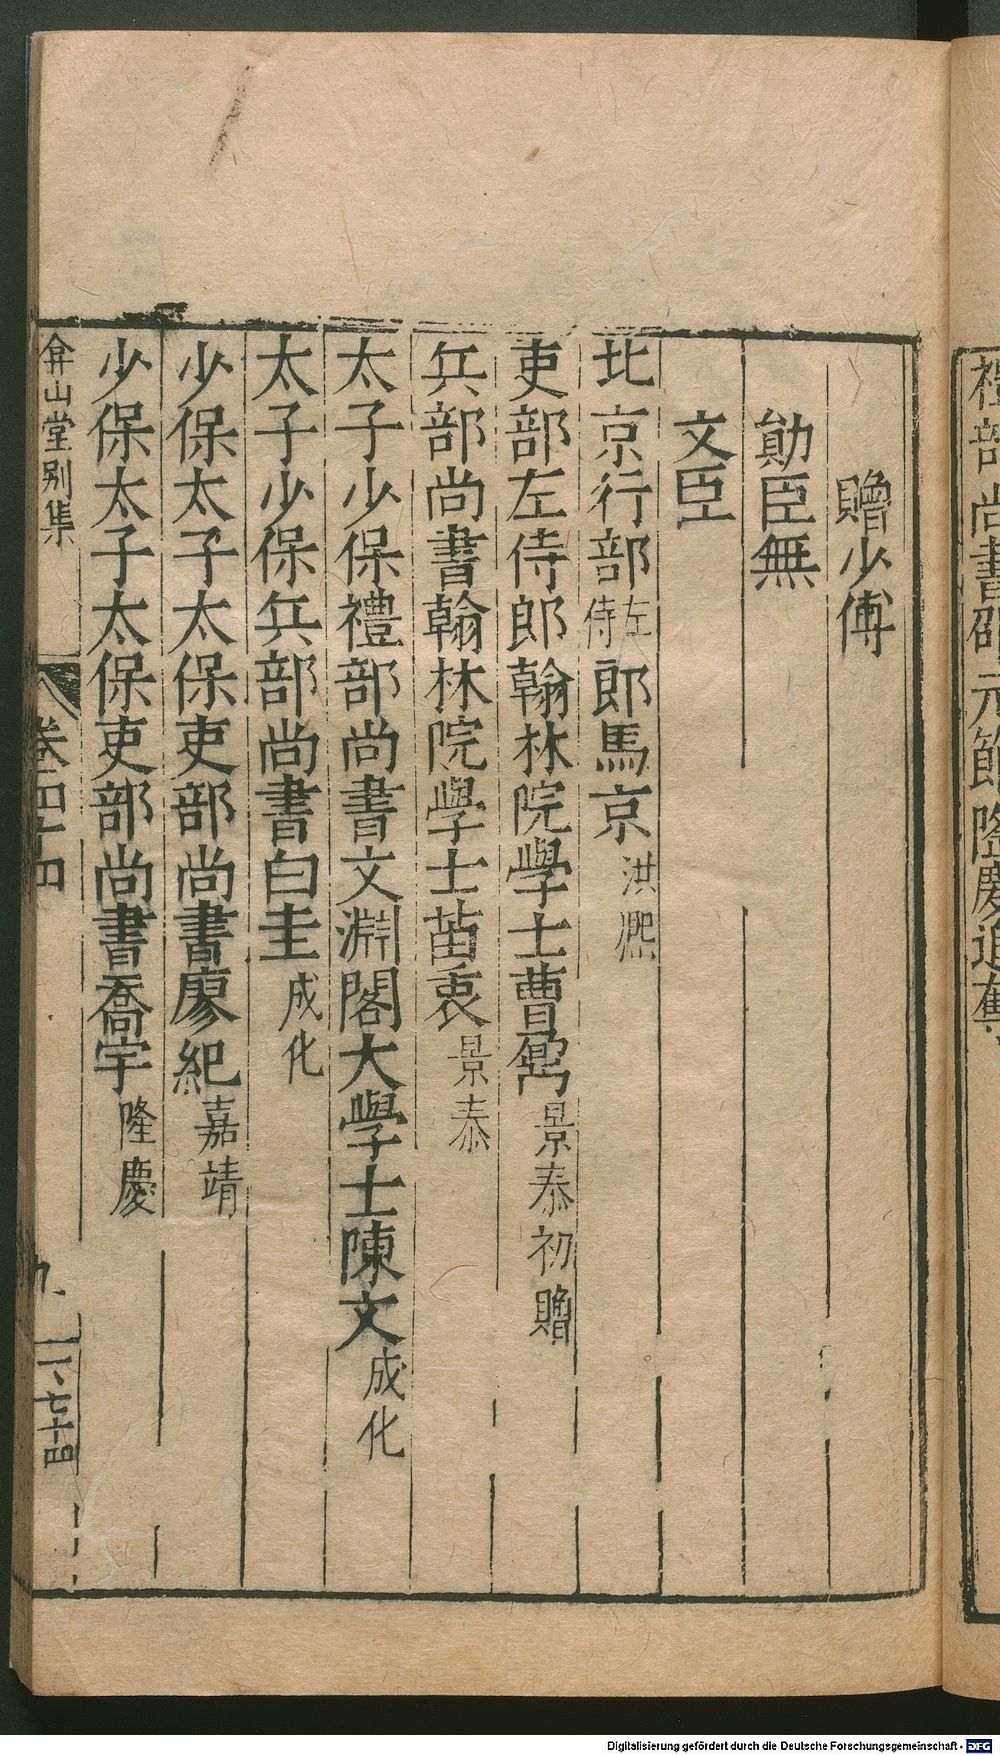 禮部尚書邵元節隆慶追奪
贈少傅
勛臣無
文臣
北京行部左侍郎馬京洪熙
吏部左侍郎翰林院學士曹鼐景泰初贈
兵部尚書翰林院學士苗衷景泰
太子少保禮部尚書文淵閣大學士陳文成化
太子少保兵部尚書白圭成化
少保太子太保吏部尚書廖紀嘉靖
少保太子太保吏部尚書喬宇隆慶
弇山堂別集
卷四十四
九
一、七十四
Digitalisierung gefördert durch die Deutsche Forschungsgemeinschaft - DFG